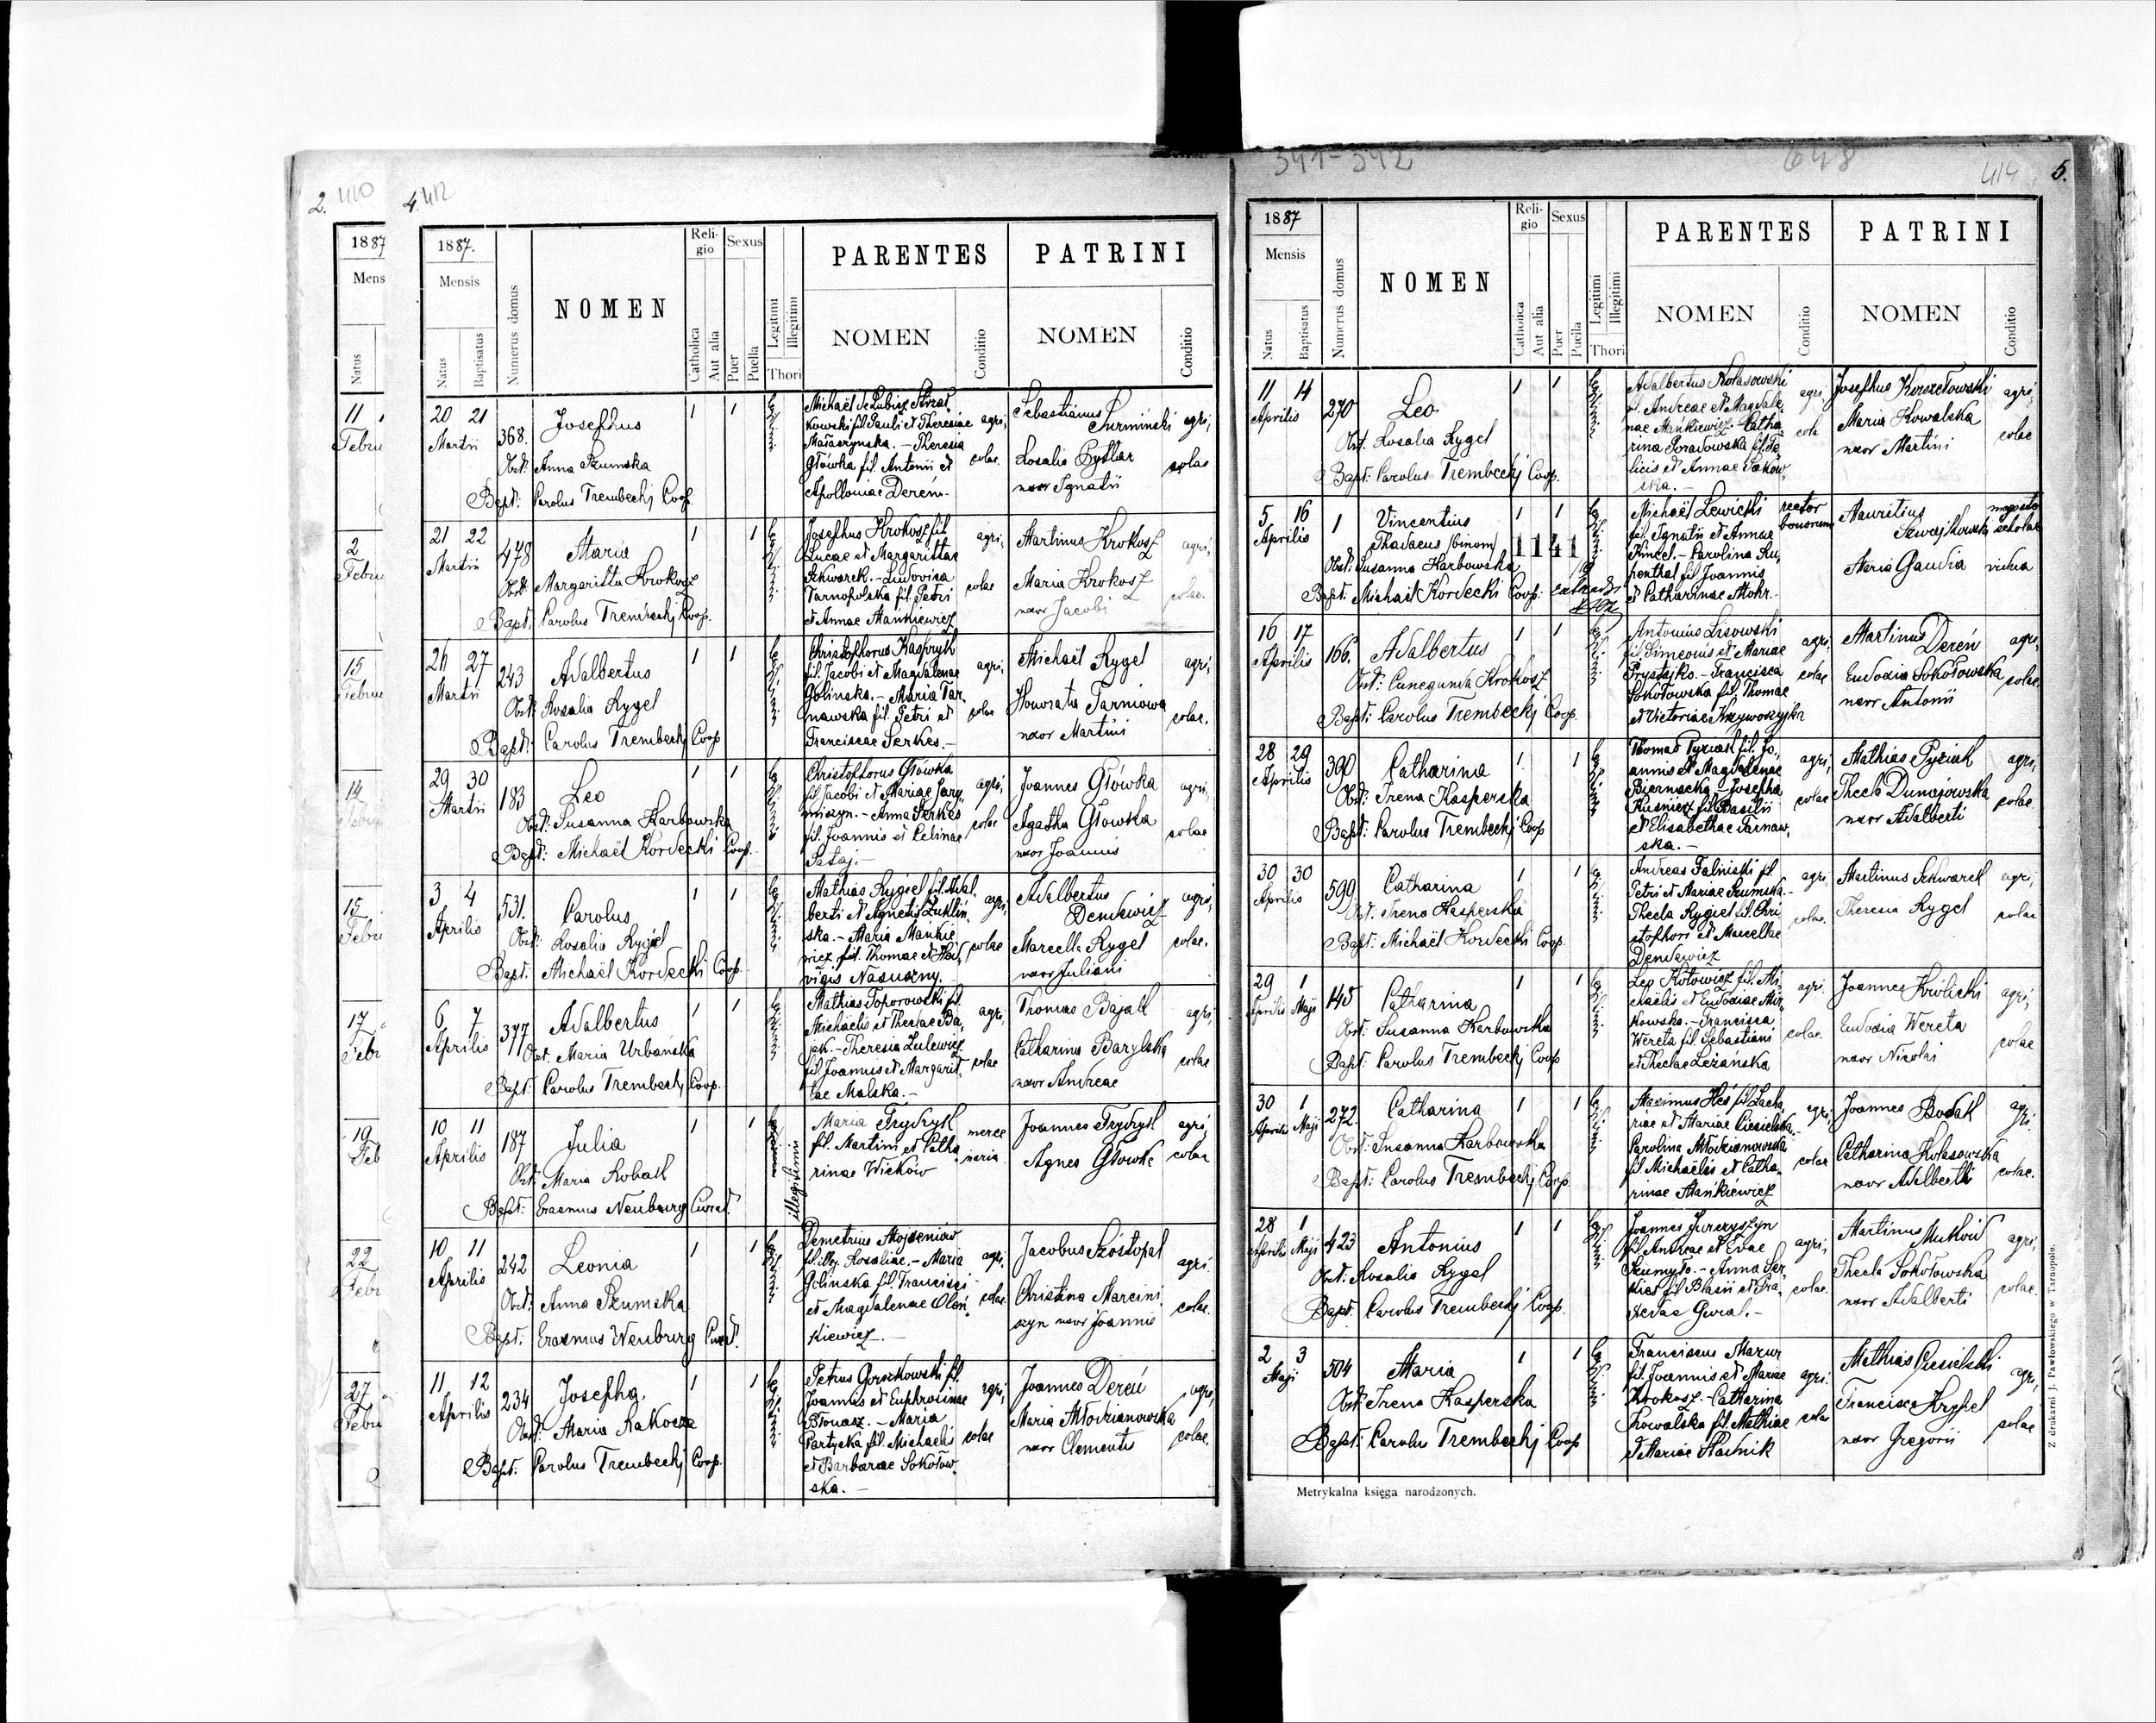 2. 410
1887
Mens
Natus
11
Febru
2
Febru
15
Februa
14
Febru
15
Febru
17
Febr
19
Feb
22
Febr
27
Febru
4. 412
1887.
Mensis
Natus
Baptisatus
Numerus domus
NOMEN
Reli-
gio
Catholica
Aut alia
Sexus
Puer
Puella
Legitimi
Illegitimi
Thori
PARENTES
NOMEN
Conditio
PATRINI
NOMEN
Conditio
20 21
Martii
368.
Josephus
Obst: Anna Szumska
Bapt: Carolus Trembecki Coop.
1 1
Michaël de Lubicz
kowski fil Pauli et Theresiae
Theresia
Główka fil. Antonii et
Apolloniae Dereń.-
agri,
colae.
Sebastianus
Surmiński
Rosalia
uxor Ignatii
agri,
colae
21 22
Martii
478
Maria
Obst: Margaritta Krokosz
Bapt: Carolus Trembecki Coop.
1 1
Josephus Krokosz fil
Lucae et Margarittae
Szkwarek.- Ludovica
Tarnopolska fil. Petri
et Annae Mańkiewicz
agri,
colae
Martinus Krokosz
Maria Krokosz
uxor Jacobi
agri,
colae.
26 27
Martii
243
Adalbertus
Obst: Rosalia Rygel
Bapt: Carolus Trembecki Coop
1 1
Christophorus Kaspryk
fil. Jacobi et Magdalenae
Golinska.- Maria Tar
nawska fil. Petri et
Franciscae Serkes.-
agri,
colae
Michaël Rygel
Honorata Tarniowa
uxor Martini
agri,
colae.
29 30
Martii
183
Leo
Obst: Susanna Harbowska
Bapt: Michaël Kordecki Coop.
1 1
Christophorus Główka
fil Jacobi et Mariae
Anna Serkes
fil. Joannis et Celinae
agri,
colae
Joannes Główka
Agatha Głowska
uxor Joannis
agri,
colae
3 4
Aprilis
531.
Carolus
Obst: Rosalia Rygiel
Bapt: Michaël Kordecki Coop.
1 1
Mathias Rygiel fil. Adal
berti et Agnetis Zuklin
ska.- Maria Mankie
wicz fil. Thomae et Hed
vigis Nasuszny.
agri,
colae
Adalbertus
Denkewicz
Marcella Rygel
uxor Juliani
agri,
colae.
6 7
Aprilis
377
Adalbertus
Obst. Maria Urbańska
Bapt: Carolus Trembecki Coop.
1 1
Mathias Toporowski fil.
Michaelis et Theclae Ba
jak.- Theresia Zulewicz
fil Joannis et Margarit
tae Malska.-
agri,
colae
Thomas Bajak
Catharina Barylska
uxor Andreae
agri,
colae
10 11
Aprilis
187
Julia
Obst: Maria Robak
Bapt: Erasmus Neuburg Curat.
1 1
illegitimi
Maria Frydryk
fil. Martini et Catha
rinae Wicków
merce
naria
Joannes Frydryk
Agnes Główka
agri,
colae
10 11
Aprilis
242
Leonia
Obst: Anna Szumska
Bapt: Erasmus Neuburg Curat.
1 1
Demetrius Mojseniow
fil. illeg. Rosaliae.- Maria
Golinska fil. Francisci
et Magdalenae Oleń
kiewicz.-
agri,
colae.
Jacobus Szóstopal
Christina Marcini
szyn uxor Joannis
agri.
colae.
11 12
Aprilis
234
Josepha.
Obst: Maria Rakocza
Bapt: Carolus Trembecki Coop.
1 1
Petrus Gorczkowski fil.
Joannis et Euphrosinae
Błonasz.- Maria
Partycka fil. Michaelis
et Barbarae Sokołow
ska.-
agri,
colae
Joannes Dereń
Maria Młodzianowska
uxor Clementis
agri,
colae.
541-542
648
414 5.
1887
Mensis
Natus
Baptisatus
Numerus domus
NOMEN
Reli-
gio
Catholica
Aut alia
Sexus
Puer
Puella
Legitimi
Illegitimi
Thori
PARENTES
NOMEN
Conditio
PATRINI
NOMEN
Conditio
11 14
Aprilis
270
Leo
Obst. Rosalia Rygel
Bapt: Carolus Trembecki Coop.
1 1
Adalbertus Kołasowski
fil. Andreae et Magdale
nae Mańkiewicz. Catha
rina Poradowska fil. Fe
licis et Annae Sakow
ska.-
agri,
colae
Josephus Korzełowski
Maria Kowalska
uxor Martini
agri,
colae
5 16
Aprilis
1
Vincentius
Thadaeus /binom/
Obst: Susanna Harbowska
Bapt: Michaël Kordecki Coop:
1 1
1141
Michaël Lewicki
fil. Ignatii et Annae
Kincel.- Carolina Ru
henthal fil Joannis
et Catharinae Mohr.-
rector
bonorum
Mauritius
Szwajkowski
Maria Gaudia
magister
scholae
vidua
16 17
Aprilis
166.
Adalbertus
Obst: Cunegunda Krokosz
Bapt: Carolus Trembecki Coop.
1 1
Antonius Lisowski
fil. Simeonis et Mariae
Prystajko.- Francisca
Sokołowska fil. Thomae
et Victoriae Krzyworzyka
agri,
colae
Martinus Dereń
Eudoxia Sokołowska
uxor Antonii
agri,
colae.
28 29
Aprilis
390
Catharina
Obst: Irena Kasperska
Bapt: Carolus Trembecki Coop
1 1
Thomas Pyziak fil. Jo
annis et Magdalenae
Biernacka.- Josepha
Kusnierz fil. Basilii
et Elisabethae Tarnaw
ska.-
agri,
colae
Mathias Pyziak
Thecla Dunajowska
uxor Adalberti
agri,
colae.
30 30
Aprilis
599
Catharina
Obst. Irena Kasperska
Bapt: Michaël Kordecki Coop.
1 1
Andreas Faliński fil.
Petri et Mariae Szumska.-
Thecla Rygiel fil. Chri
stophori et Marcellae
Denkewicz
agri,
colae.
Martinus Szkwarek
Theresia Rygel
agri,
colae
29 1
Aprilis Maji
145
Catharina
Obst: Susanna Harbowska
Bapt: Carolus Trembecki Coop
1 1
Leo Kotowicz fil. Mi
chaëlis et Eudoxiae Mir
kowska.- Francisca
Wereta fil. Sebastiani
et Theclae Leżańska
agri.
colae.
Joannes Królicki
Eudoxia Wereta
uxor Nicolai
agri,
colae
30 1
Aprilis Maji
272.
Catharina
Obst: Susanna Harbowska
Bapt: Carolus Trembecki Coop
1 1
Maximus Hés fil Zacha
riae et Mariae Ciesielska.-
Carolina Młodzianowska
fil Michaëlis et Catha
rinae Mańkiewicz
agri,
colae
Joannes Bodak
Catharina Kołasowska
uxor Adalberti
agri.
colae.
28 1
Aprilis Maji
423
Antonius
Obst: Rosalia Rygel
Bapt. Carolus Trembecki Coop.
1 1
Joannes Jureczyszyn
fil. Andreae et Evae
Szumyło.- Anna Ser
kies fil. Blasii et Pra
xedae Gural.-
agri,
colae.
Martinus Mukow
Thecla Sokołowska
uxor Adalberti
agri,
colae.
2 3
Maji
504
Maria
Obst: Irena Kasperska
Bapt: Carolus Trembecki Coop
1 1
Franciscus Mazur
fil. Joannis et Mariae
Krokosz.- Catharina
Kowalska fil. Mathiae
et Mariae
agri.
colae
Mathias Ciesielski
Francisca
uxor Gregorii
agri,
colae
Metrykalna księga narodzonych.
Z drukarni J. Pawłowskiego w Tarnopolu.